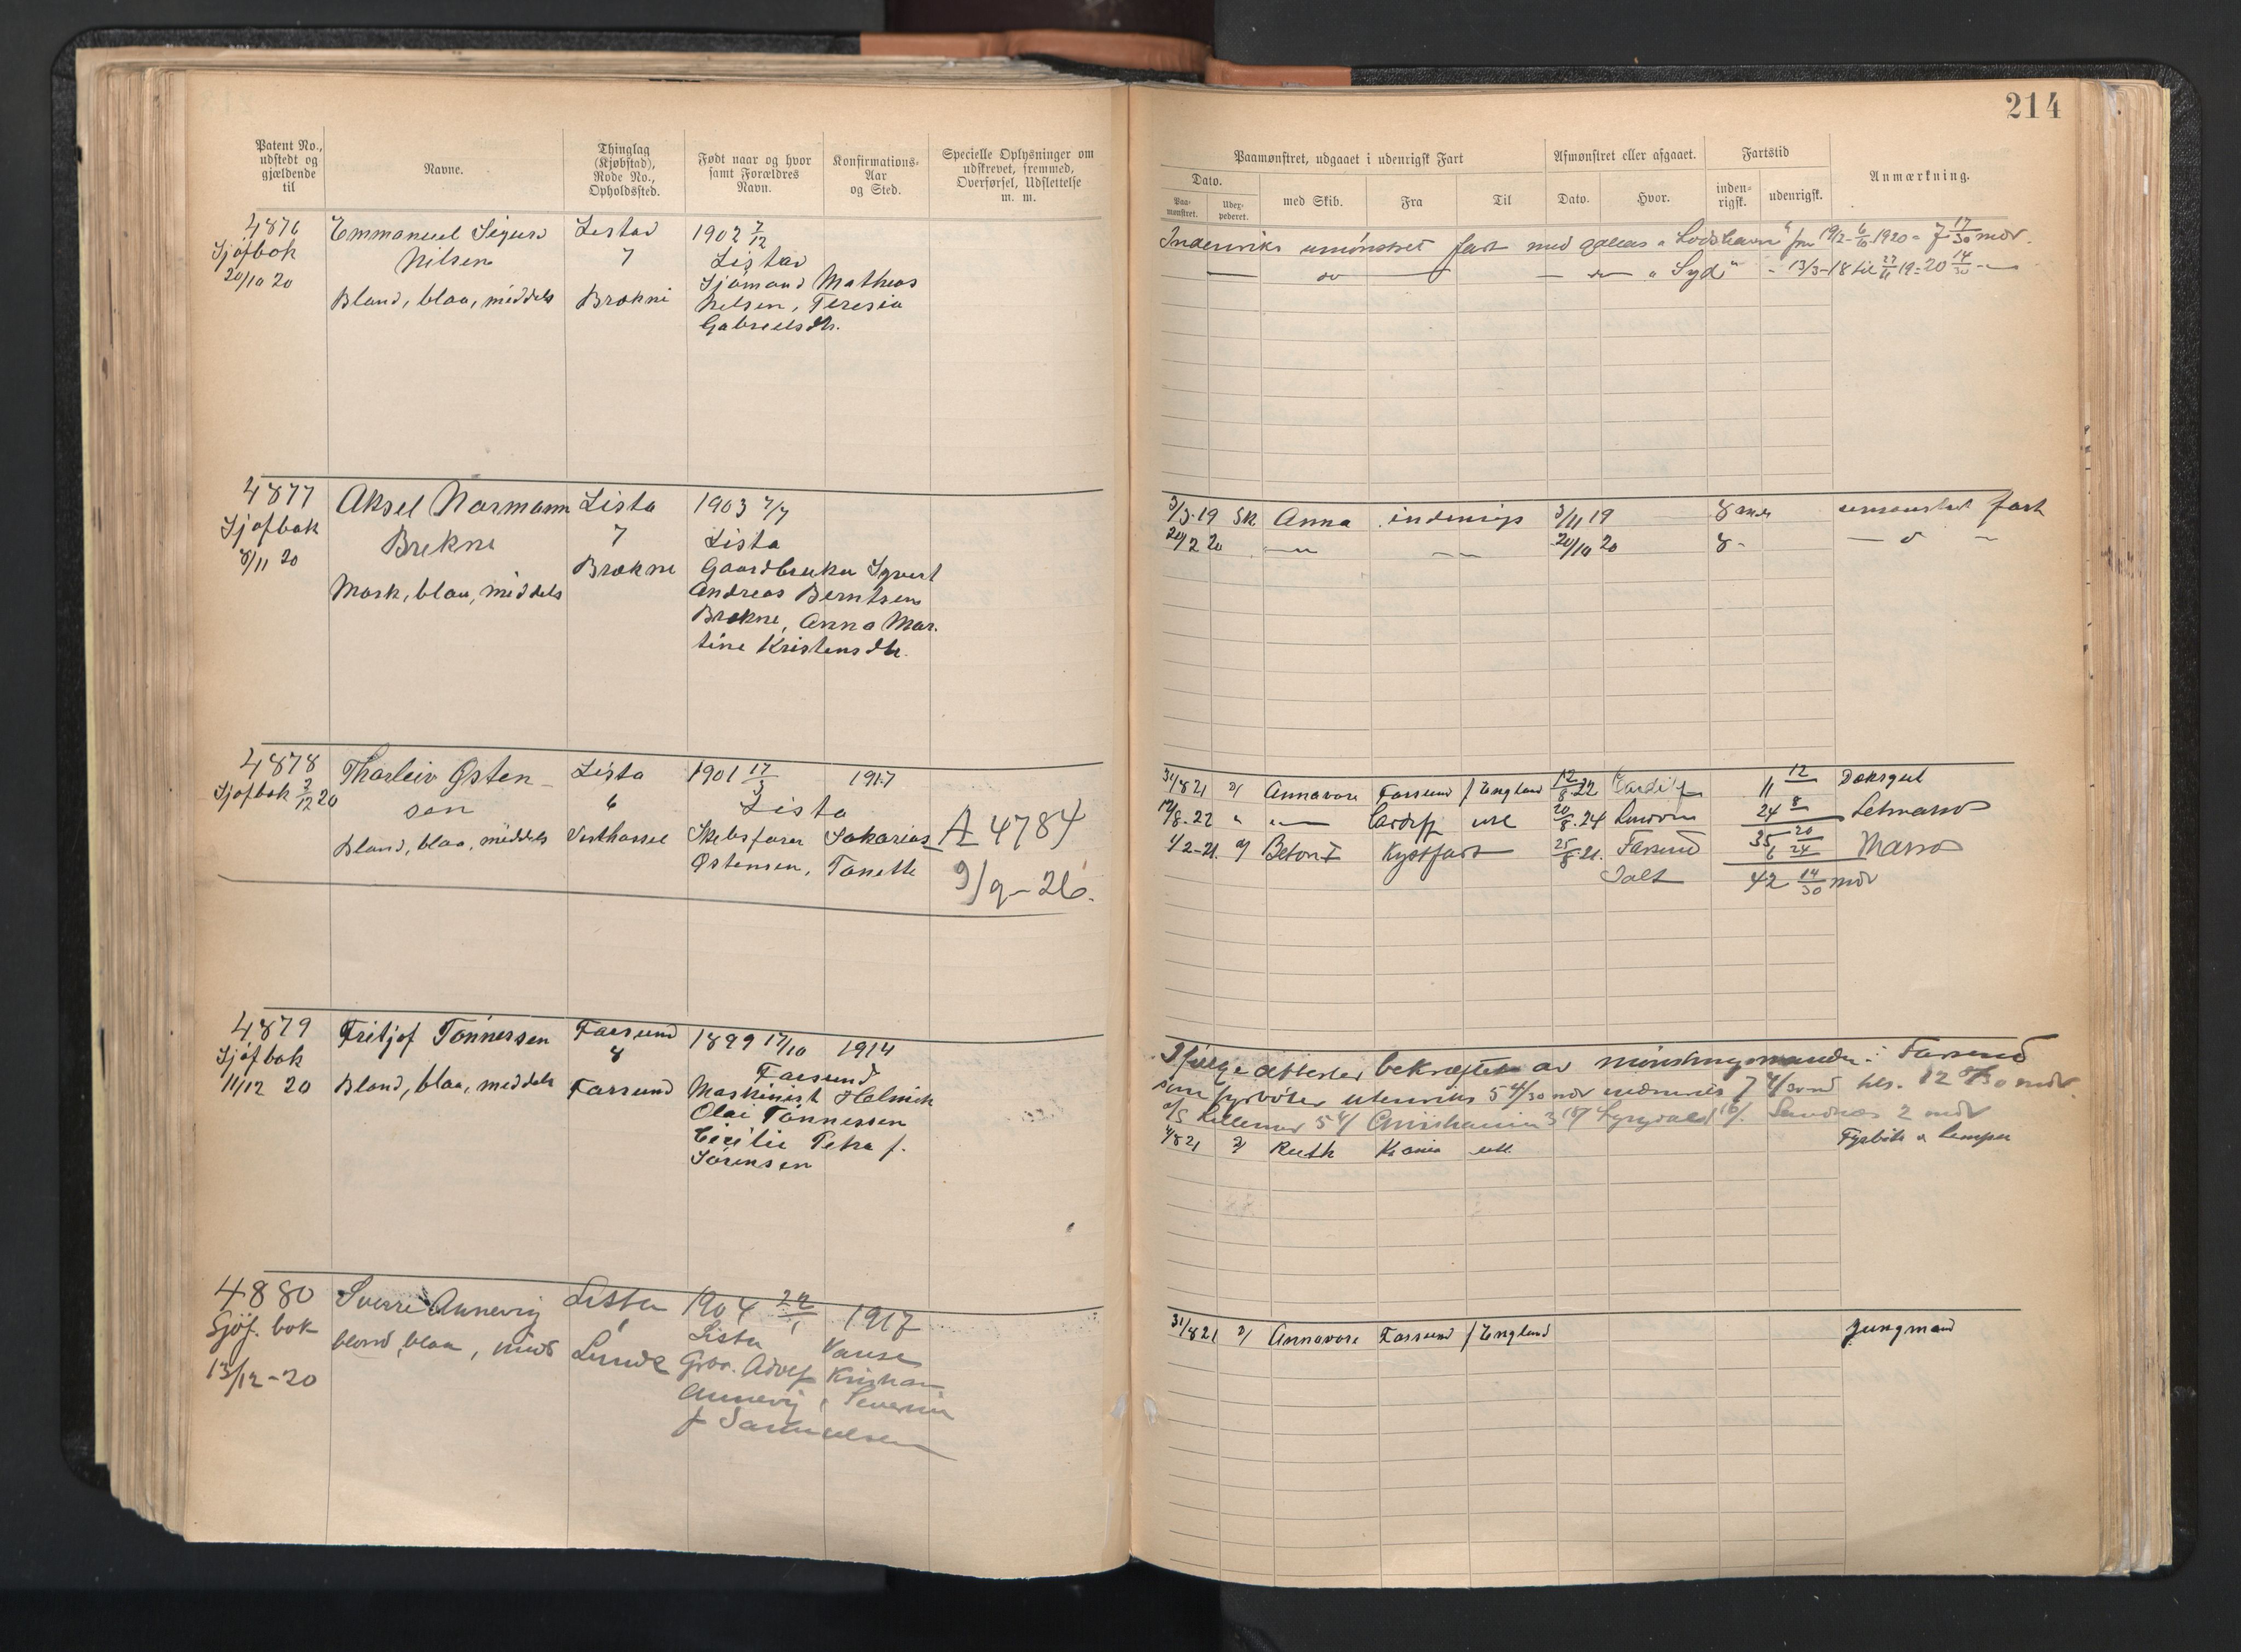 214
Patent No., udstedt og gjældende til
Navne.
Thinglag (Kjøbstad), Rode No., Opholdssted.
Født naar og hvor samt Forældres Navn.
Konfirmations-Aar og Sted.
Specielle Oplysninger om udskrevet, fremmed, Overførsel, Udslettelse m. m.
Paamønstret, udgaaet i udenrigsk Fart
Afmønstret eller afgaaet.
Fartstid
Anmærkning.
Dato.
Paa-mønstret.
Uder-pederet.
med Skib.
Fra
Til
Dato.
Hvor.
inden-rigsk.
udenrigsk.
4876 Emmanuel Sigurd Listad 1902 7/12
Sjøfbok Nilsen 7 Listad
20/10 20 Sjømand Mathias
Bland, blaa, middels Brekne Nilsen, Teresia
Gabrielsdtr.
Indenriks umønstret fart med galeas "Lodshavn" fra 19/2-6/10 1920 = 7 17/30 mdr.
— do — — "Syd" - 13/3-18 til 27/11 19 = 20 14/30 -
4877 Aksel Normann Lista 1903 7/7
Sjøfbok Brekne 7 Lista
8/11 20 Brekne Gaardbruker Syvert
Mørk, blaa, middels Andreas Berntsen
Brekne, Anna Mar-
tine Kristensdtr.
3/3-19 Sk Anna indenrigs 3/11 19 8 mdr umønstret fart
20/2 20 — — 20/10 20 8 - — " —
4878 Thorleiv Østen- Lista 1901 17/3 1917
Sjøfbok 3/12 20 sen 6 Lista
Bland, blaa, middels Vesthassel Skibsfører Sakarias A 4784
Østensen, Tonette 9/9-26.
31/8 21 Annavore Farsund / England 12/8-22 Cardiff 11 12 Dæksgut
12/8-22 " — Cardiff utl 20/8-24 24 8 Letmatros
35 20
1/2-21. Beton I Kystfart 25/8-21. Farsund 6 24 Matros
Ialt 42 14/30 mdr
4879 Fritjof Tønnessen Farsund 1899 17/10 1914
Sjøfbok 8 Farsund
11/12 20 Bland, blaa, middels Farsund Maskinist Holmick
Olai Tønnessen
Cicilie Petra f.
Sørensen
Ifølge attester bekræftet av mønstringsmanden i Farsund
som fyrbøter utenriks 5 4/30 mdr indenriks 7 4/30 md tils. 12 8/30 mdr.
Lillemor 5 4/ 2 mdr
4/8 21 Ruth Kr.ania utl. Fyrbøter & lemper
4880 Sverre Annevig Lista 1904 29/1 1917
Sjøf. bok Lista Vanse
blond, blaa, midd Lunde Grov. Adolf Kristian
13/12-20 Annevig, Severine
f Samuelsen
31/8 21 Annavore Farsund / England Jungmand